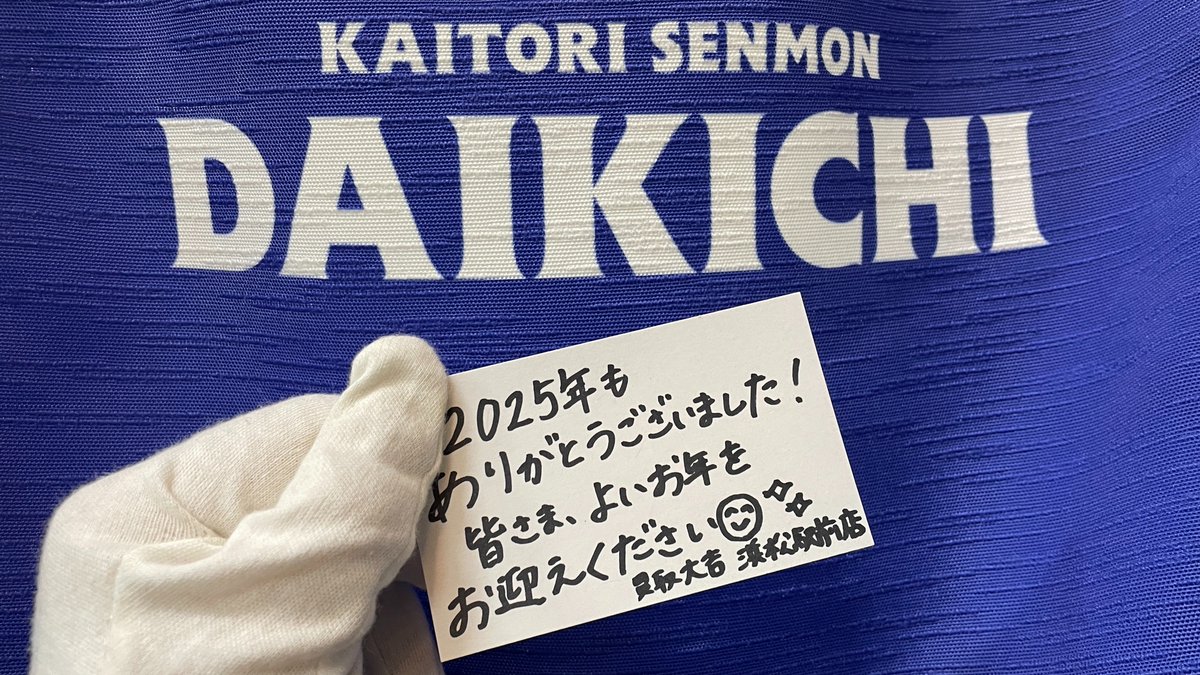 KAITORI SENMON
DAIKICHI
2025年も
ありがとうございました！
皆さま、よいお年を
お迎えください
買取大吉 浜松駅前店